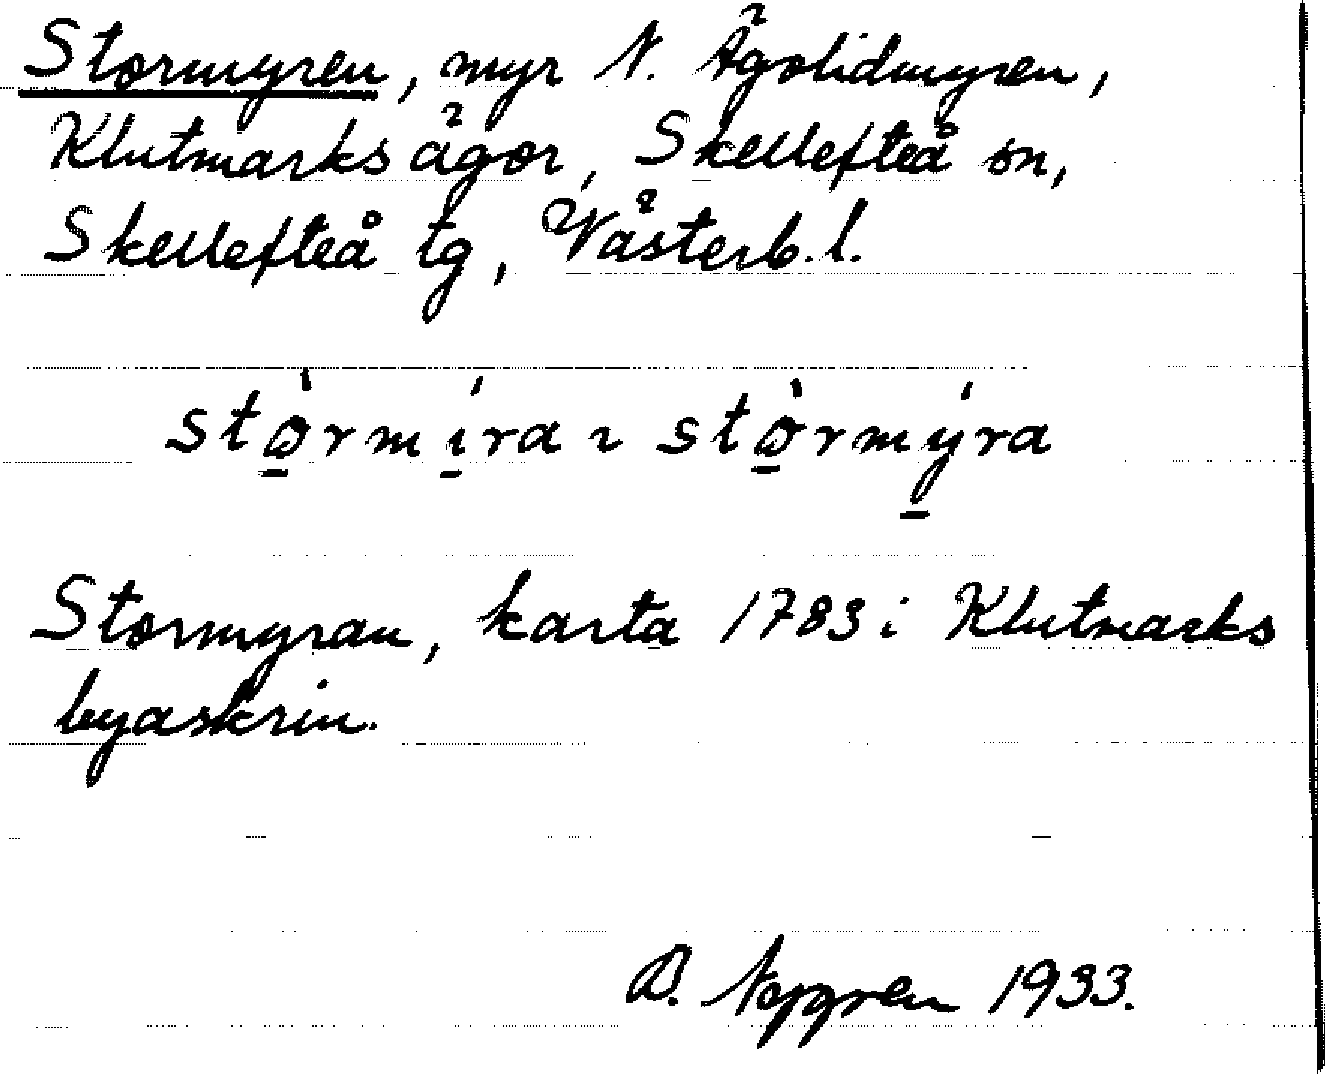 Stormyren, myr N. Ägolidmyren,
Klutmarks ägor, Skellefteå sn,
Skellefteå tg, Västerb. l.
stò̱rmí̱ra ı stò̱rmý̱ra
Stormyran, karta 1783 i Klutmarks
byaskrin.
1933.